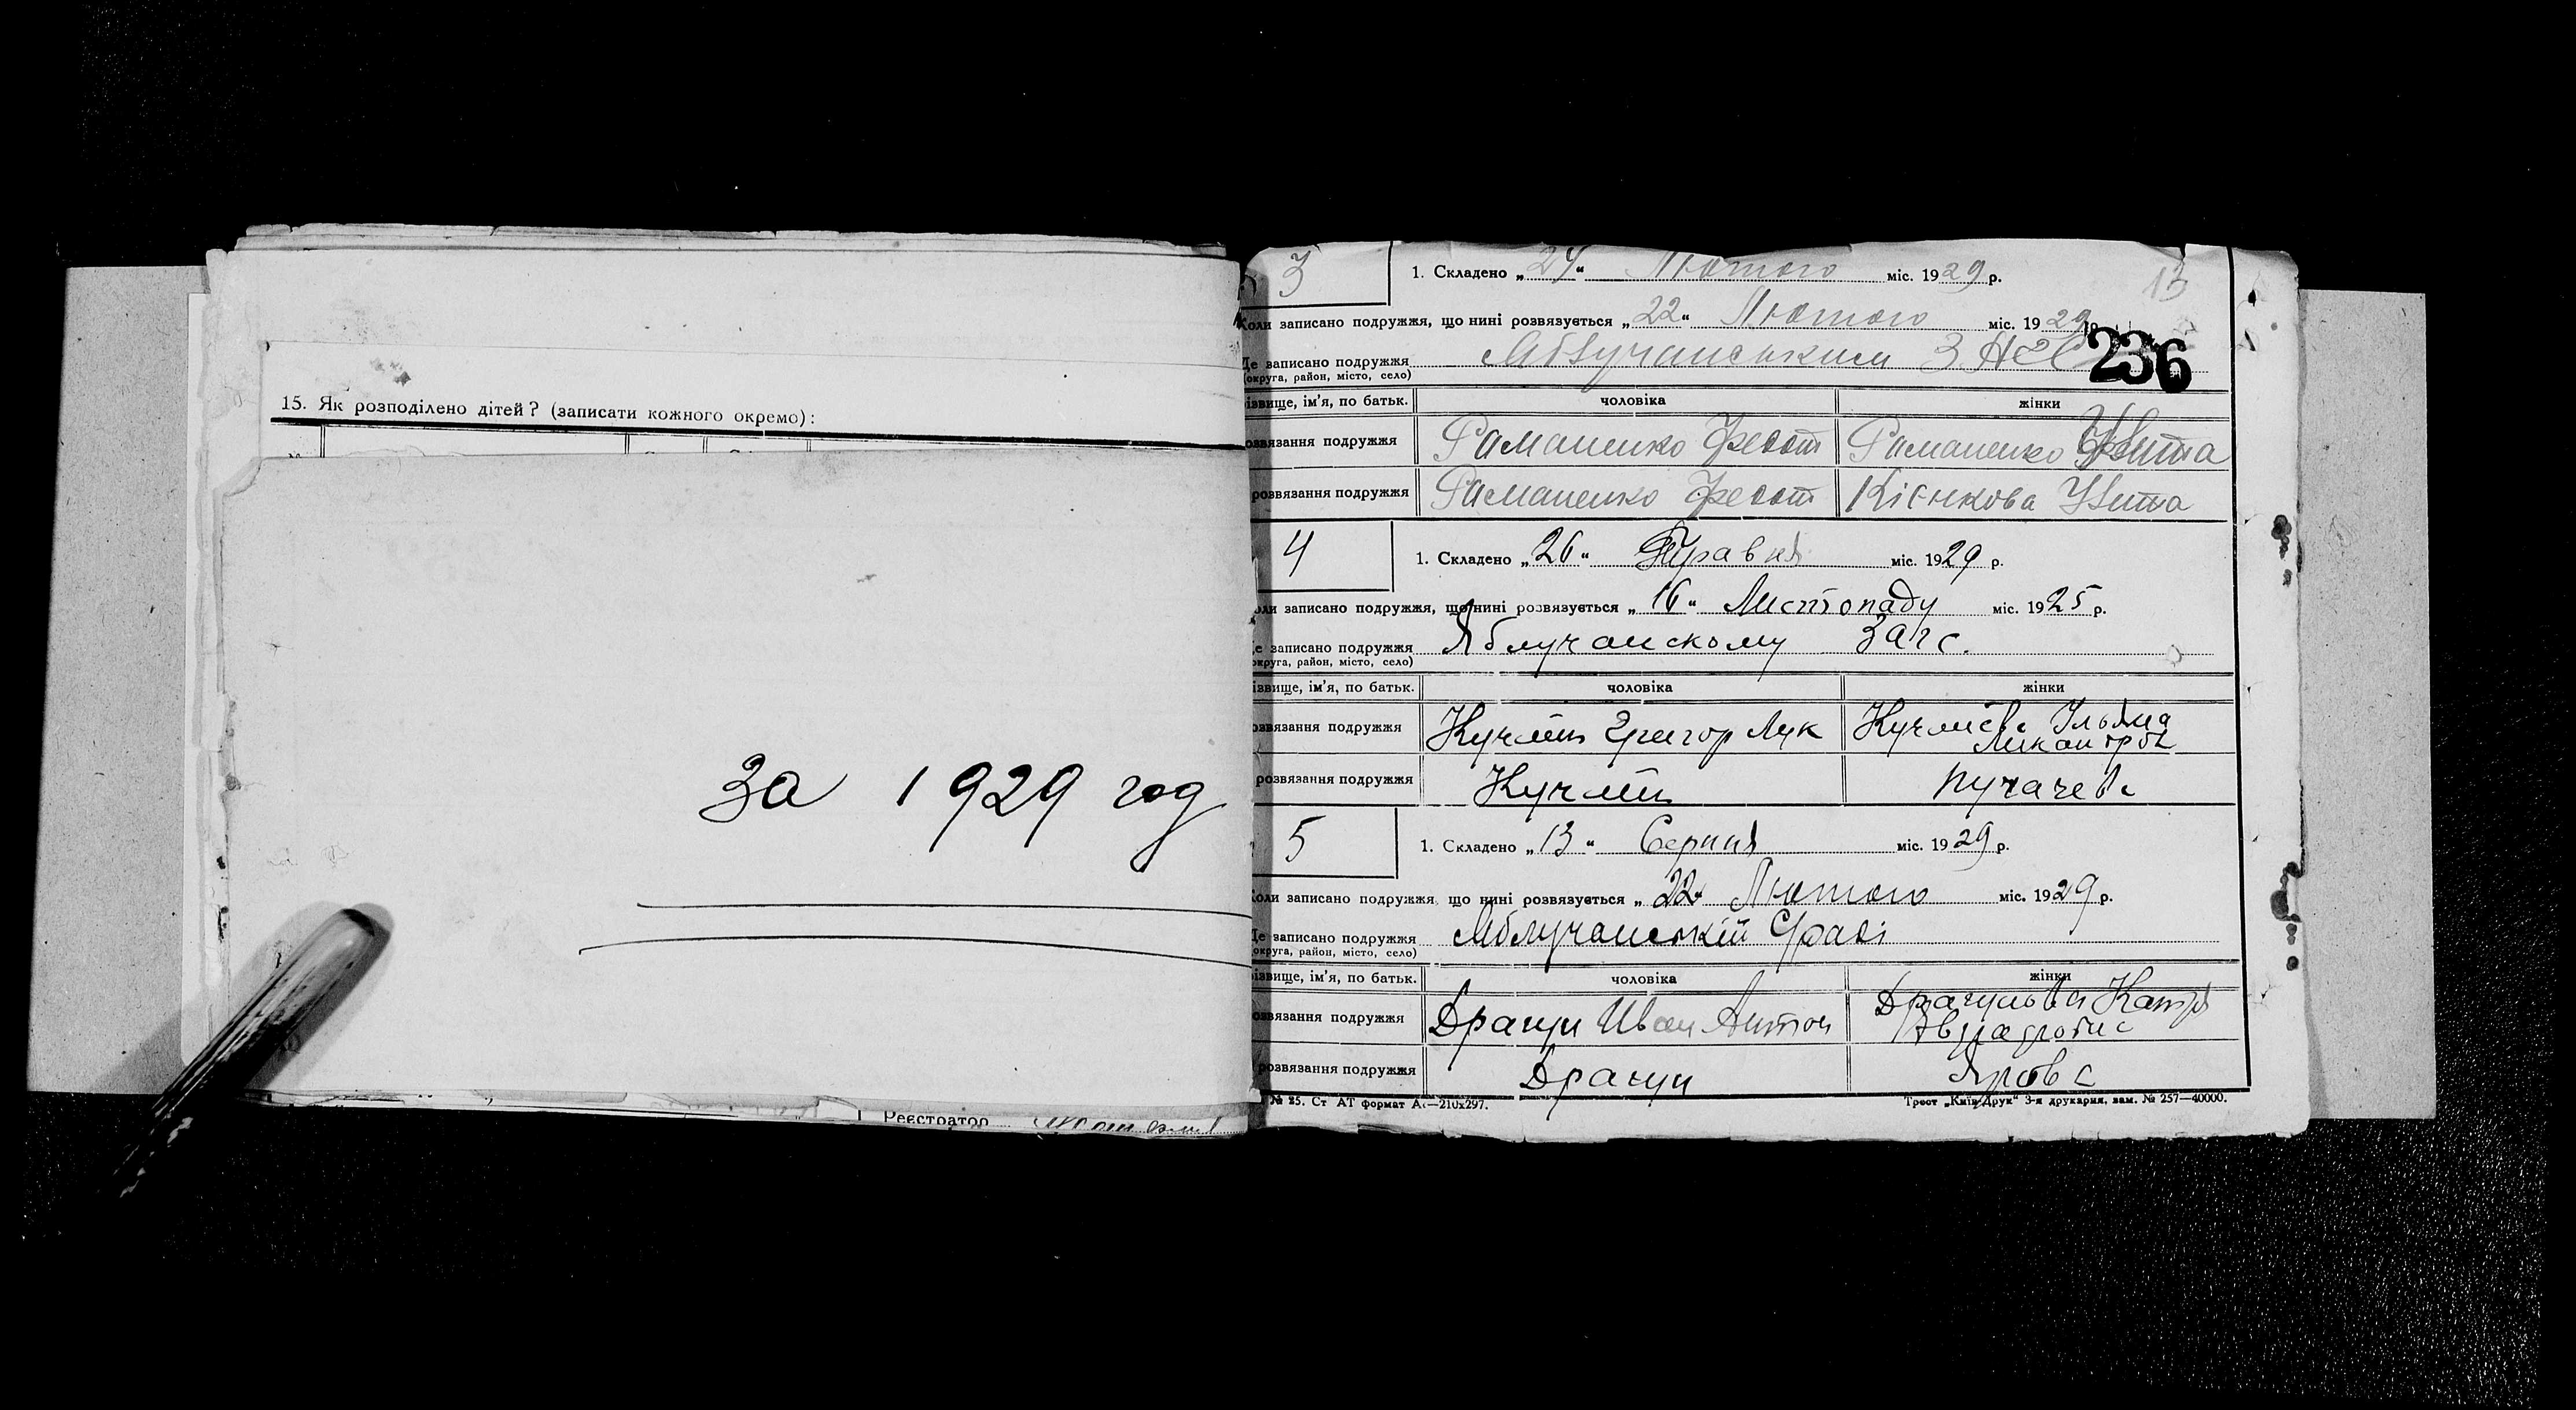 15. Як розподілено дітей? (записати кожного окремо):
За 1929 год
Реєстратор
3
1. Складено „24“ Лютого міс. 1929 р.
13
Коли записано подружжя, що нині розвязується „22“ Лютого міс. 1929 р.
236
Де записано подружжя Яблучанським ЗАГС
(округа, район, місто, село)
різвище, ім'я, по батьк. чоловіка жінки
розвязання подружжя Раманенко Федот Раманенко Улита
розвязання подружжя Раманенко Федот Кієнкова Улита
4
1. Складено „26“ Травня міс. 1929 р.
Коли записано подружжя, що нині розвязується „16“ Листопаду міс. 1925 р.
Де записано подружжя Яблучанскому Загс.
(округа, район, місто, село)
різвище, ім'я, по батьк. чоловіка жінки
розвязання подружжя Григор Лук Ульяна
розвязання подружжя Пугачева
5
1. Складено „13“ Серпня міс. 1929 р.
Коли записано подружжя що нині розвязується „22“ Лютого міс. 1929 р.
Де записано подружжя Яблучанській С/раді
(округа, район, місто, село)
різвище, ім'я, по батьк. чоловіка жінки
розвязання подружжя Драгун Иван Антон Катря
розвязання подружжя Драгун
№ 25. Ст АТ формат А₄—210x297.
Трест „Київ-Друк“ 3-я друкарня, зам. № 257—40000.